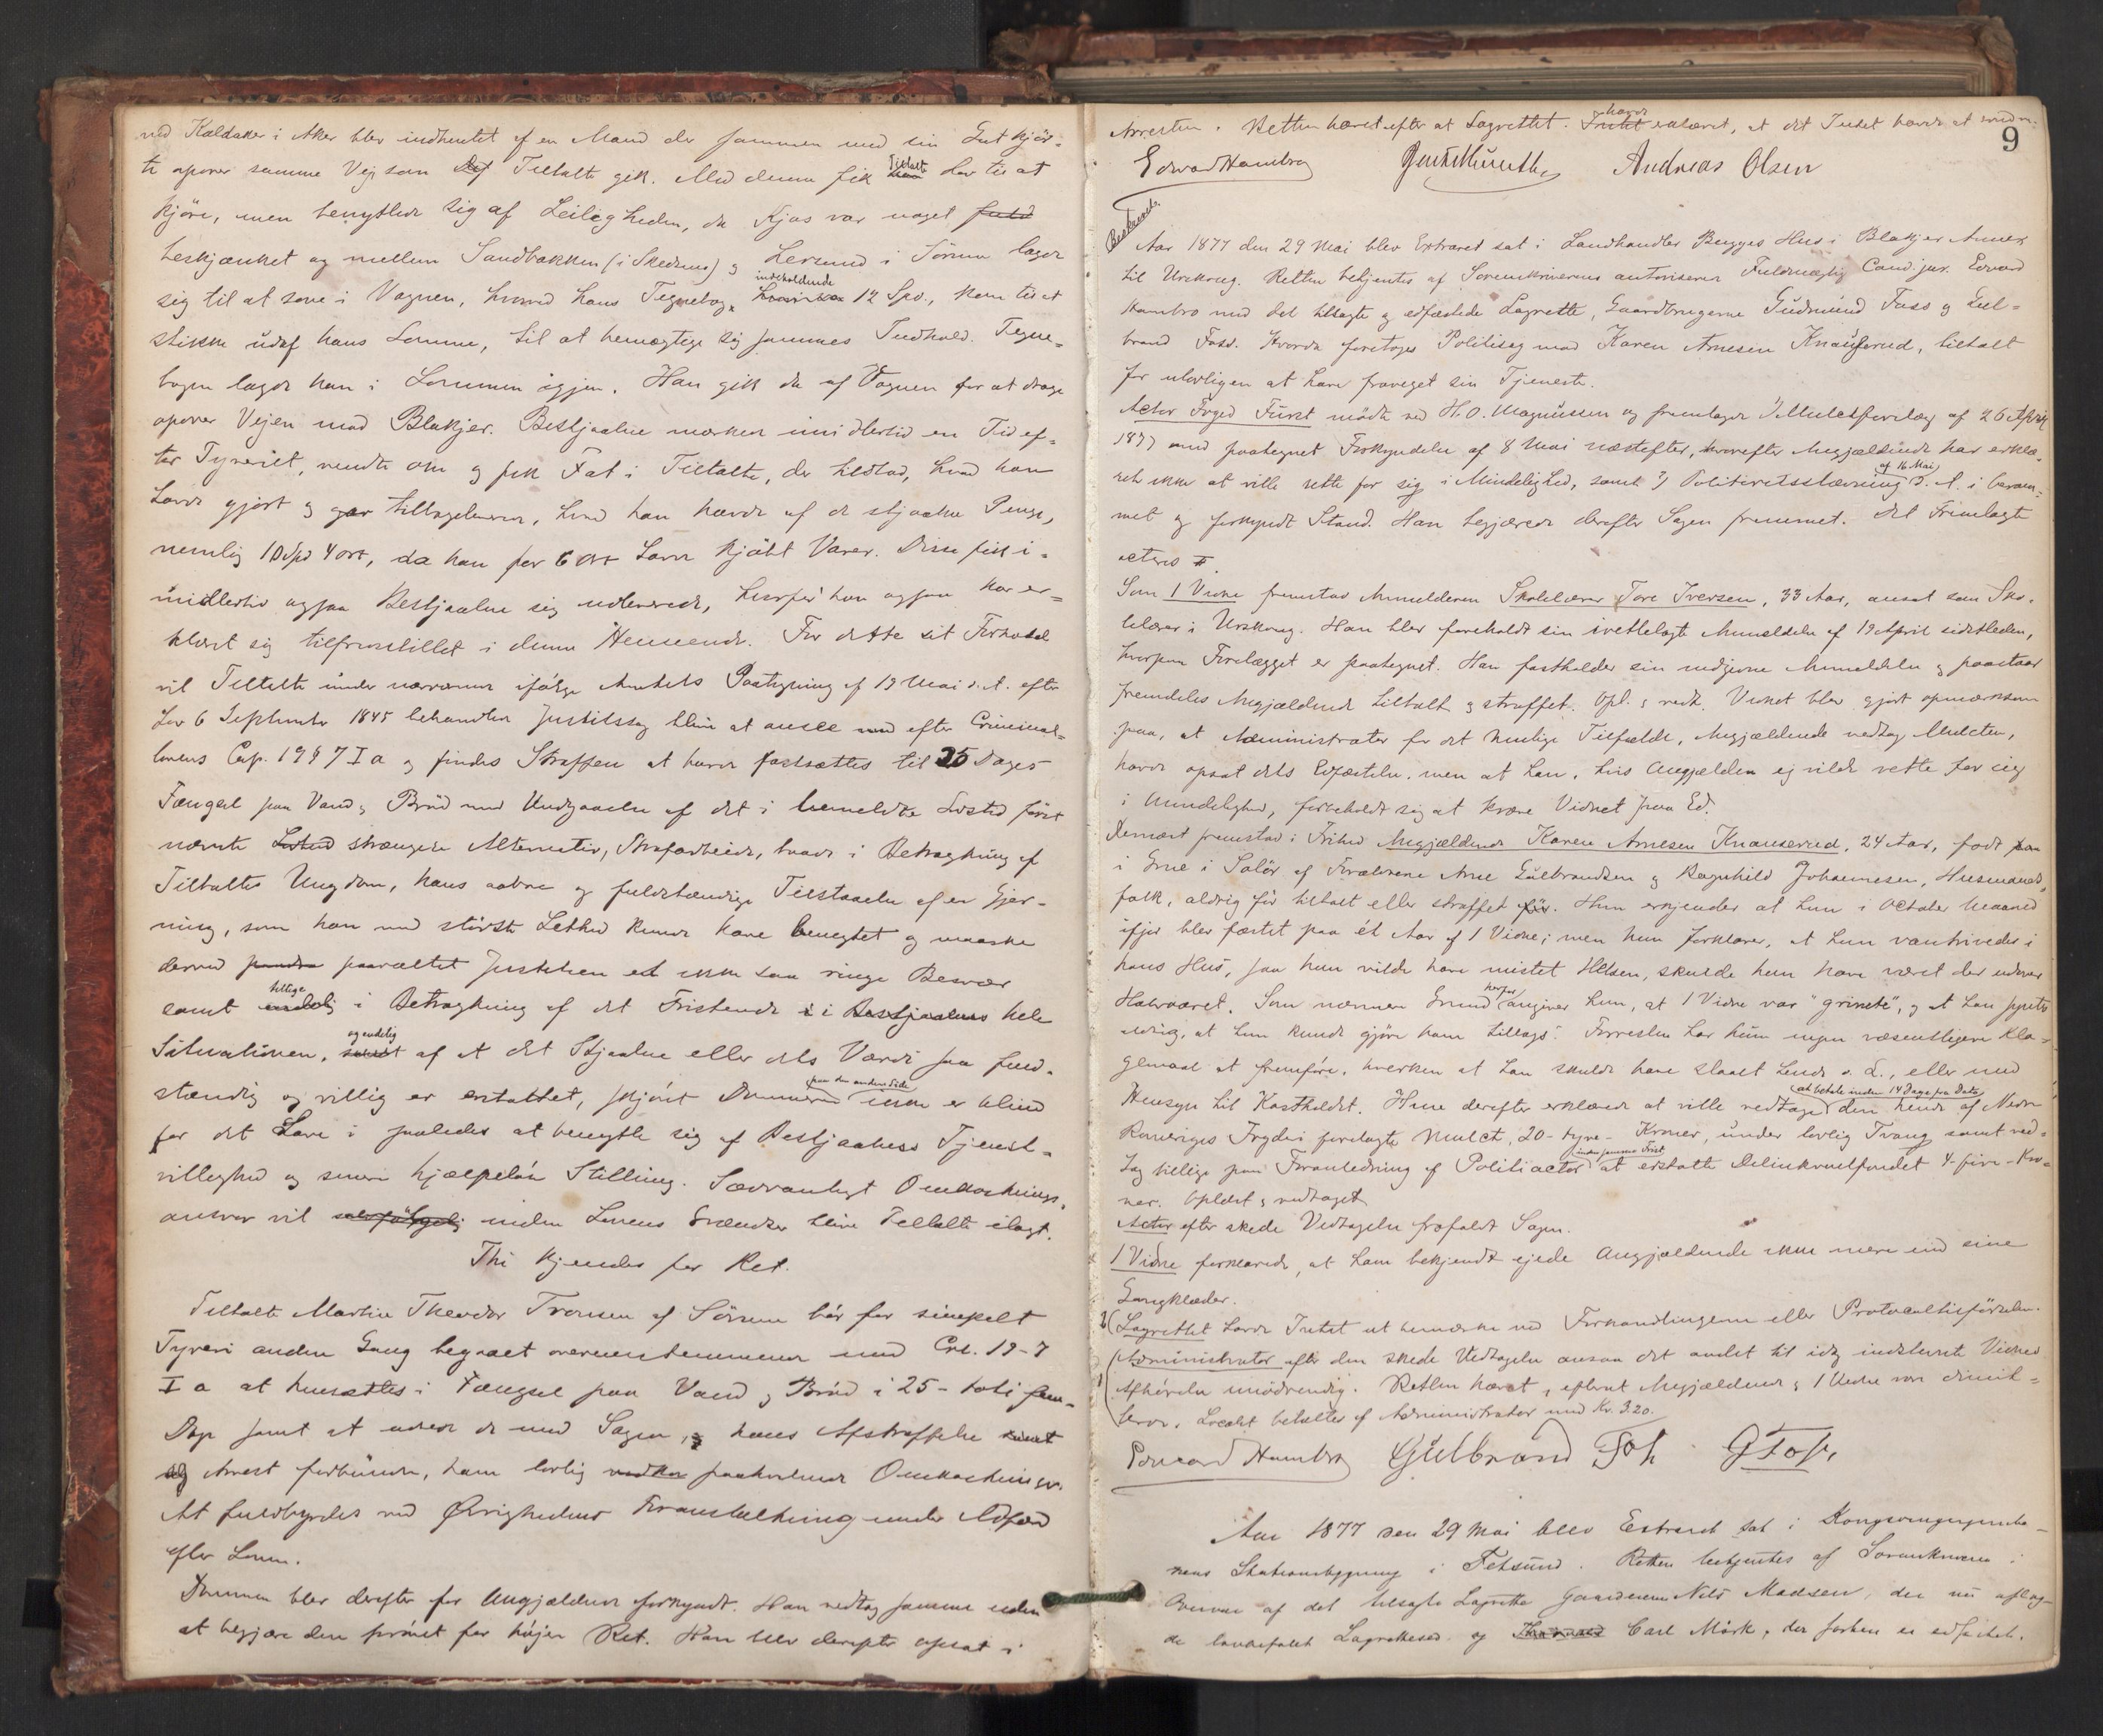 ved Kaldaker i Aker blev indhentet af en Mand der sammen med sin Gut kjør-
te opover samme Vej som Tiltalte gik. Med denne fik Tiltalte Lov til at
kjøre, men benyttede sig af Leiligheden, da Kjos var noget
beskjænket og mellem Sandbakken (i Skedsmo) og Lersund i Sørum lagde
sig til at sove i Vognen, hvorved hans Tegnebog, indeholdende 12 Spd., kom til at
stikke udaf hans Lomme, til at bemægtige sig sammes Indhold. Tegne-
bogen lagde han i Lommen igjen. Han gik da af Vognen for at drage
opover Vejen mod Blakjer. Bestjaalne mærkede imidlertid en Tid ef-
ter Tyveriet, vendte om og fik Fat i Tiltalte, der tilstod, hvad han
havde gjort og gav tilbageleverede, hvad han havde af de stjaalne Penge,
nemlig 10 Spd 4 ort, da han for 6 ort havde kjøbt Varer. Disse fik i-
midlertid ogsaa Bestjaalne sig udleverede, hvorfor han ogsaa har er-
klæret sig tilfredsstillet i denne Henseende. For dette sit Forhold
vil Tiltalte under nærværende ifølge Amtets Paategning af 19 Mai d. A. efter
Lov 6 September 1845 behandlede Justitssag blive at ansee efter Criminal-
lovens Cap. 19 § 7 I a og findes Straffen at burde fastsættes til 25 Dages
Fængsel paa Vand og Brød med Undgaaelse af det i bemeldte Lovsted først
nævnte strængere Alternativ, Strafarbeide, baade i Betragtning af
Tiltaltes Ungdom, hans aabne og fuldstændige Tilstaaelse af en Gjer-
ning, som han med største Lethed kunde have benegtet og maaske
derved paavæltet Justitien et ikke saa ringe Besvær
samt tillige i Betragtning af det Fristende i hele
Situationen, og endelig af at det Stjaalne eller dets Værdi saa fuld-
stændig og villig er erstattet, skjønt Dommeren paa den anden Side ikke er blind
for det Lave i saaledes at benytte sig af Bestjaalnes Tjenst-
villighed og senere hjælpeløse Stilling. Sædvanligt Omkostnings-
ansvar vil inden Lovens Grændser blive Tiltalte ilagt.
Thi kjendes for Ret.
Tiltalte Martin Theodor Tronsen af Sørum bør for simpelt
Tyveri anden Gang begaaet overensstemmende med Crl. 19-7
I a at hensættes i Fængsel paa Vand og Brød i 25 - toti fem -
Dage samt at udrede de med Sagen, hans Afstraffelse
og Arrest forbundne, ham lovlig paakommende Omkostninger.
At fuldbyrdes ved Øvrighedens Foranstaltning under Adfærd
efter Loven.
Dommen blev derefter for Angjældende forkyndt. Han vedtog samme uden
at begjære den prøvet for højere Ret. Han blev derefter afsat i
9
Arresten. Retten hævet efter at Lagrettet havde erklæret, at det Intet havde at erindre.
Edvard Hambro Andreas Olsen
Aar 1877 den 29 Mai blev Extraret sat i Landhandler Bugges Hus i Blakjer Annex
til Urskoug. Retten betjentes af Sorenskriverens autoriserede Fuldmægtig Cand. jur. Edvard
Hambro med det tilsagte og edfæstede Lagrette, Gaardbrugerne Gudmund Foss og Gul-
brand Foss. Hvorda foretoges Politisag mod Karen Arnesen Knauserud, tiltalt
for ulovligen at have fraveget sin Tjeneste.
Actor Foged Fürst mødte ved H. O. Magnussen og fremlagde 1) Mulctsforelæg af 26 April
1877 med paategnet Forkyndelse af 8 Mai næstefter, hvorefter Angjældende har erklæ-
ret ikke at ville rette for sig i Mindelighed, samt 2) Politiretsstævning af 16 Mai d. A. i beram-
met og forkyndt Stand. Han begjærede derefter Sagen fremmet. Det Fremlagte
acteres
Som 1 Vidne fremstod Anmelderen Skolelærer Tore Iversen, 33 Aar, ansat som Sko-
lelærer i Urskoug. Han blev foreholdt sin ivettelagte Anmeldelse af 19 April sidstleden,
hvorpaa Forelægget er paategnet. Han fastholder sin indgivne Anmeldelse og paastaar
fremdeles Angjældende tiltalt og straffet. Opl. & vedt. Vidnet blev gjort opmærksom
paa, at Administrator for det mulige Tilfælde, Angjældende vedtog Mulcten,
havde opsat dets Edfæstelse, men at han, hvis Angjælden ej vilde rette for sig
i Mindelighed, forbeholdt sig at kræve Vidnet paa Ed.
Dernæst fremstod i Frihed Angjældende Karen Arnesen Knauserud, 24 Aar, født
i Grue i Solør af Forældrene Arne Gulbrandsen og Ragnhild Johannesen, Husmands-
folk, aldrig før tiltalt eller straffet. Hun erkjender at hun i October Maaned
ifjor blev fæstet paa ét Aar af 1 Vidne; men hun forklarer, at hun vantrivedes i
hans Hus, saa hun vilde have mistet Helsen, skulde hun have været der udover
Halvaaret. Som nærmere Grund herfor angiver hun, at 1 Vidne var "grinete", og at han syntes
aldrig, at hun kunde gjøre ham tillags. Forresten har hun ingen væsentligere Kla-
gemaal at fremføre, hverken at han skulde have slaaet hende o. L., eller med
Hensyn til Kostholdet. Hun derefter erklærede at ville vedtage at betale inden 14 Dage fra Dato den hende af Nedre
Romeriges Fogderi forelagte Mulct, 20 - tyve - Kroner, under lovlig Tvang samt ved-
tog tillige paa Foranledning af Politiactor inden samme Frist at erstatte Delinkventfondet 4 - fire - Kro-
ner. Oplæst & vedtaget
Actor efter skede Vedtagelse frafaldt Sagen.
1 Vidne forklarede, at ham bekjendt ejede Angjældende ikke mere end sine
Gangklæder.
2( Lagrettet havde Intet at bemærke ved Forhandlingerne eller Protocoltilførselen.
1( Administrator efter den skede Vedtagelse ansaa det andet til idag indstevnte Vidnes
Afhørelse unødvendig. Retten hævet, efterat Angjældende & 1 Vidne var dimit-
terede. Localet betaltes af Administrator med Kr. 3.20.
Edvard Hambro Gulbrand Foss G Foss
Aar 1877 den 29 Mai blev Extraret sat i Kongsvingerba-
nens Stationsbygning i Fetsund. Retten betjentes af Sorenskriveren i
Overvær af det tilsagte Lagrette Gaardeierne Nils Madsen, der nu aflag-
de lovbefalet Lagrettesed og Carl Mørk, der forhen er edfæstet.